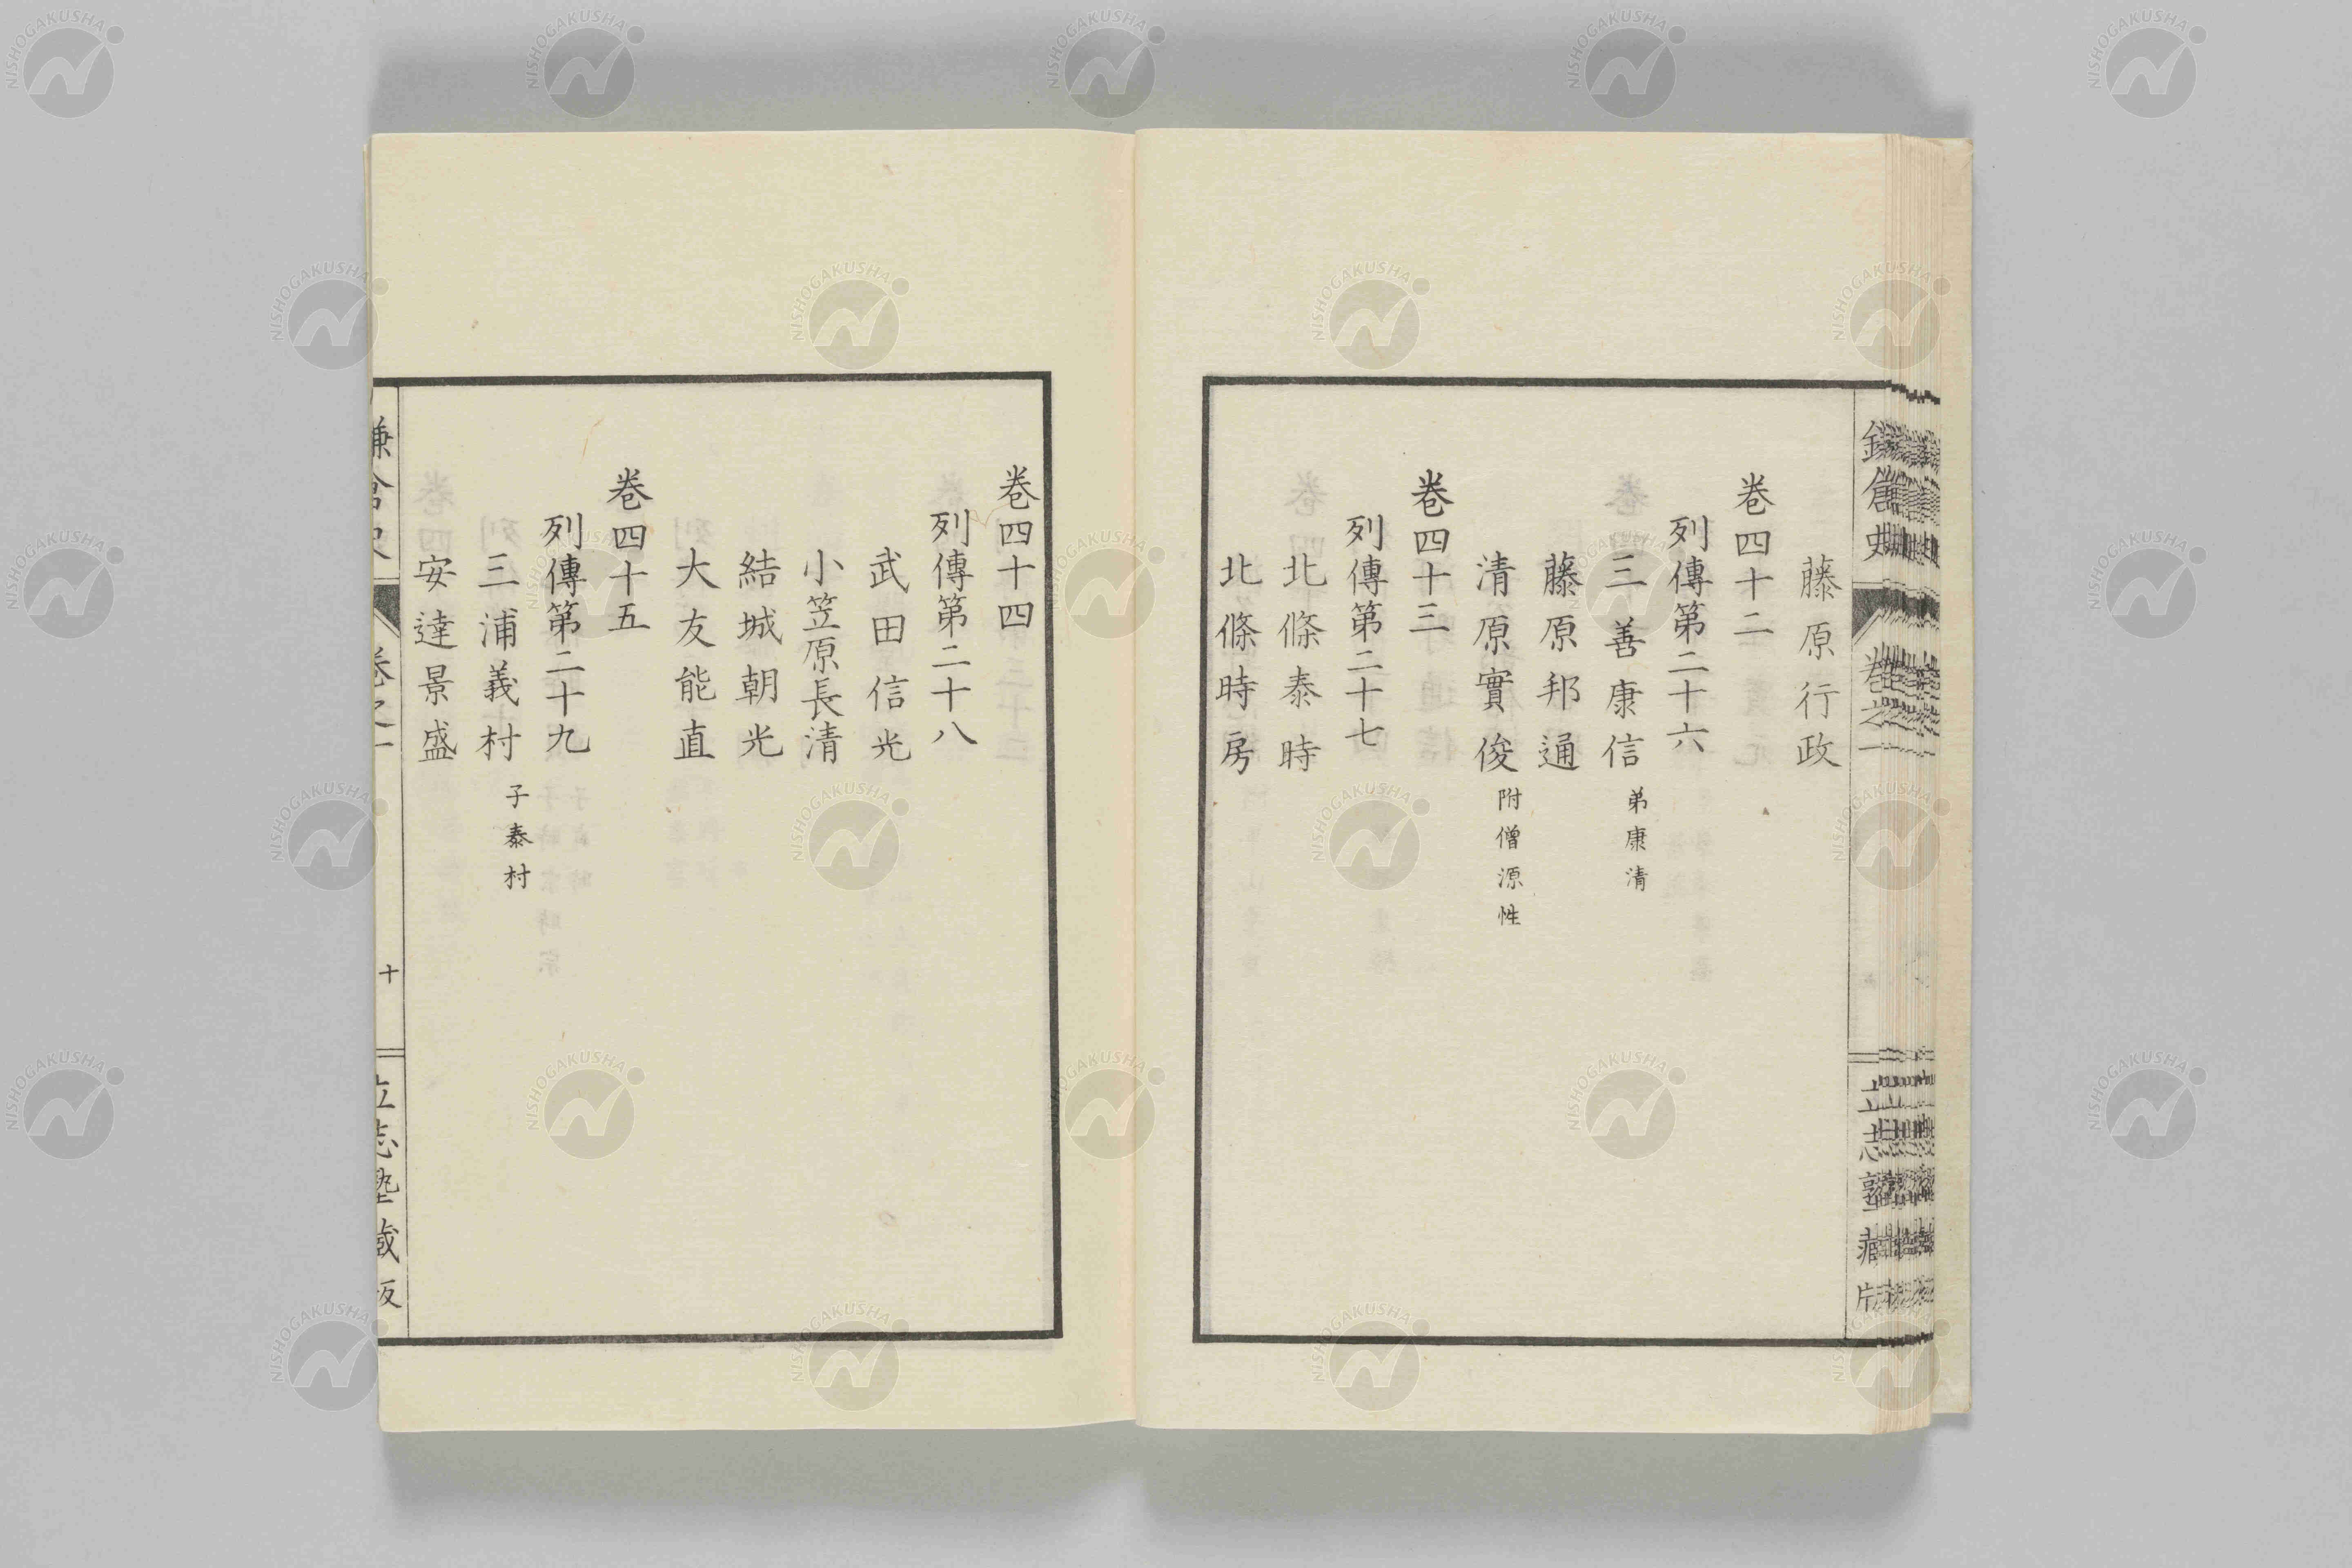 鎌倉史
卷之一
立志塾藏
藤原行政
卷四十二
列傳第二十六
三善康信 弟康清
藤原邦通
清原實俊 附僧源性
卷四十三
列傳第二十七
北條泰時
北條時房
卷四十四
列傳第二十八
武田信光
小笠原長清
結城朝光
大友能直
卷四十五
列傳第二十九
三浦義村 子泰村
安達景盛
鎌倉史
卷之一
十
立志塾藏版
NISHOGAKUSHA